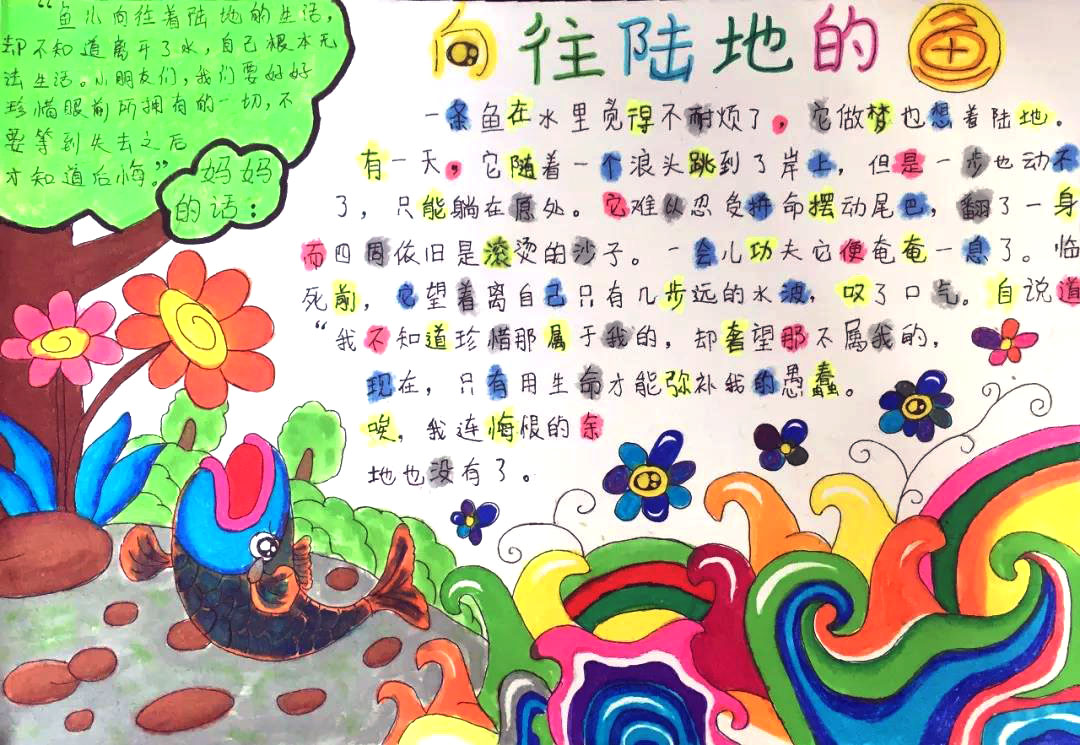 向往陆地的鱼
一条鱼在水里觉得不耐烦了，它做梦也想着陆地。
有一天，它随着一个浪头跳到了岸上，但是一步也动不
了，只能躺在原处。它难以忍受拼命摆动尾巴，翻了一身
而四周依旧是滚烫的沙子。一会儿功夫它便奄奄一息了。临
死前，它望着离自己只有几步远的水波，叹了口气。自说道
“我不知道珍惜那属于我的，却奢望那不属我的，
现在，只有用生命才能弥补我的愚蠢。
唉，我连悔恨的余
地也没有了。
妈妈
的话：
“鱼儿向往着陆地的生活，
却不知道离开了水，自己根本无
法生活。小朋友们，我们要好好
珍惜眼前所拥有的一切，不
要等到失去之后
才知道后悔。”